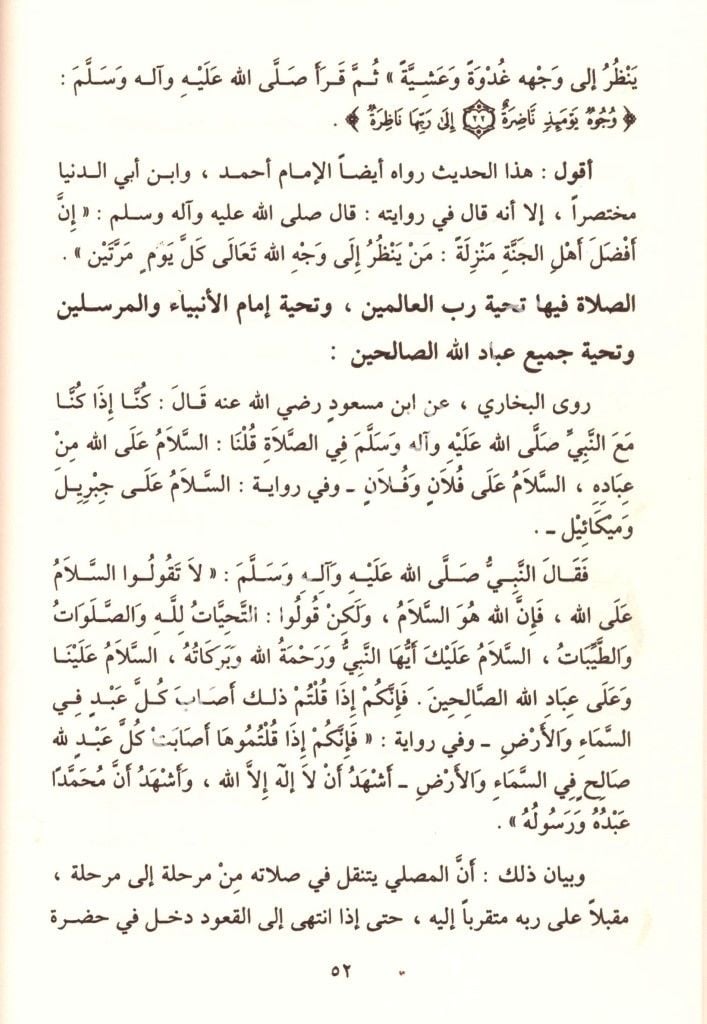 يَنْظُرُ إلى وَجْهه غُدْوَةً وَعَشِيَّةً » ثُمَّ قَرَأَ صَلَّى الله عَلَيْهِ وآله وَسَلَّمَ :
﴿ وُجُوهٌ يَوْمَئِذٍ نَّاضِرَةٌ ۝٢٢ إِلَىٰ رَبِّهَا نَاظِرَةٌ ﴾ .
أقول : هذا الحديث رواه أيضاً الإمام أحمد ، وابن أبي الدنيا
مختصراً ، إلا أنه قال في روايته : قال صلى الله عليه وآله وسلم : « إنَّ
أَفْضَلَ أَهْلِ الجَنَّةِ مَنْزِلَةً : مَنْ يَنْظُرُ إلَى وَجْهِ الله تَعَالَى كَلَّ يَوْمٍ مَرَّتَيْن » .
الصلاة فيها تحية رب العالمين ، وتحية إمام الأنبياء والمرسلين
وتحية جميع عباد الله الصالحين :
روى البخاري ، عن ابن مسعودٍ رضي الله عنه قَالَ : كُنَّا إذَا كُنَّا
مَعَ النَّبِيِّ صَلَّى الله عَلَيْهِ وآله وَسَلَّمَ فِي الصَّلاَةِ قُلْنَا : السَّلاَمُ عَلَى الله مِنْ
عِبَادِهِ ، السَّلاَمُ عَلَى فُلاَنٍ وَفُلاَنٍ ـ وفي رواية : السَّلاَمُ عَلَى جِبْرِيلَ
وَمَيْكَائِيْل ـ .
فَقَالَ النَّبِيُّ صَلَّى الله عَلَيْهِ وَآلِهِ وَسَلَّمَ : « لاَ تَقُولُوا السَّلاَمُ
عَلَى الله ، فَإنَّ الله هُوَ السَّلاَمُ ، وَلَكِنْ قُولُوا : التَّحِيَّاتُ لِلَّهِ وَالصَّلَوَاتُ
وَالطَّيِّبَاتُ ، السَّلاَمُ عَلَيْكَ أَيُّهَا النَّبِيُّ وَرَحْمَةُ الله وَبَرَكَاتُهُ ، السَّلاَمُ عَلَيْنَا
وَعَلَى عِبَادِ الله الصَّالِحِينَ . فَإنَّكُمْ إذَا قُلْتُمْ ذلك أَصَابَ كُلَّ عَبْدٍ فِي
السَّمَاءِ وَالأَرْضِ ـ وفي رواية : « فَإنَّكُمْ إذَا قُلْتُمُوهَا أَصَابَتْ كُلَّ عَبْدٍ لله
صَالِحٍ فِي السَّمَاءِ وَالأَرْضِ ـ أَشْهَدُ أَنْ لاَ إلَهَ إلاَّ الله ، وَأَشْهَدُ أَنَّ مُحَمَّدًا
عَبْدُهُ وَرَسُولُهُ » .
وبيان ذلك : أنَّ المصلي يتنقل في صلاته مِنْ مرحلة إلى مرحلة ،
مقبلاً على ربه متقرباً إليه ، حتى إذا انتهى إلى القعود دخل في حضرة
٥٢